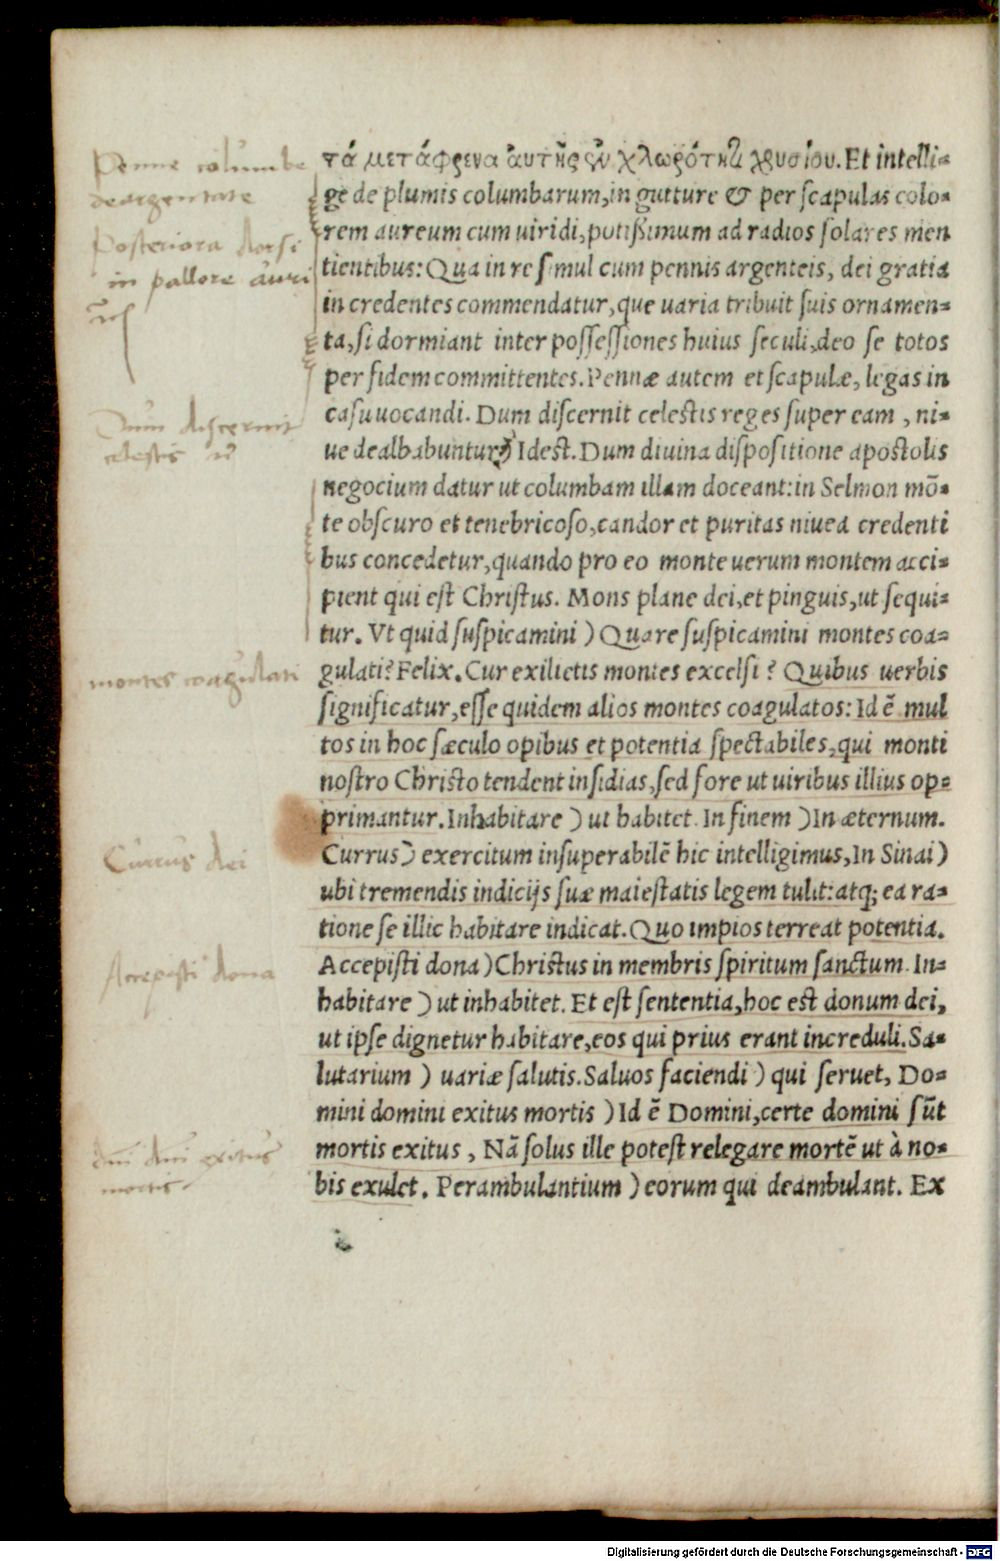 τά μετάφρενα ἀυτῆς ἐν χλωρότητι χρυσίου. Et intelli-
ge de plumis columbarum, in gutture & per scapulas colo-
rem aureum cum uiridi, potißimum ad radios solares men
tientibus: Qua in re simul cum pennis argenteis, dei gratia
in credentes commendatur, que uaria tribuit suis ornamen-
ta, si dormiant inter possessiones huius seculi, deo se totos
per fidem committentes. Pennæ autem et scapulæ, legas in
casu uocandi. Dum discernit celestis reges super eam, ni-
ue dealbabuntur) Idest. Dum diuina dispositione apostolis
negocium datur ut columbam illam doceant: in Selmon mō-
te obscuro et tenebricoso, candor et puritas niuea credenti
bus concedetur, quando pro eo monte uerum montem acci-
pient qui est Christus. Mons plane dei, et pinguis, ut sequi-
tur. Vt quid suspicamini) Quare suspicamini montes coa-
gulati? Felix. Cur exilietis montes excelsi? Quibus uerbis
significatur, esse quidem alios montes coagulatos: Id ē mul
tos in hoc sæculo opibus et potentia spectabiles, qui monti
nostro Christo tendent insidias, sed fore ut uiribus illius op-
primantur. Inhabitare) ut habitet. In finem) In æternum.
Currus) exercitum insuperabilē hic intelligimus, In Sinai)
ubi tremendis indicijs suæ maiestatis legem tulit: atq; ea ra-
tione se illic habitare indicat. Quo impios terreat potentia.
Accepisti dona) Christus in membris spiritum sanctum. In-
habitare) ut inhabitet. Et est sententia, hoc est donum dei,
ut ipse dignetur habitare, eos qui prius erant increduli. Sa-
lutarium) uariæ salutis. Saluos faciendi) qui seruet, Do-
mini domini exitus mortis) Id ē Domini, certe domini sūt
mortis exitus, Nā solus ille potest relegare mortē ut à no-
bis exulet. Perambulantium) eorum qui deambulant. Ex
Penne columbe
deargentate
Posteriora dorsi
in pallore auri
Dum discernit
celestis
montes coagulati
Currus dei
Accepisti dona
dn̄i dn̄i exitus
mortis
Digitalisierung gefördert durch die Deutsche Forschungsgemeinschaft - DFG